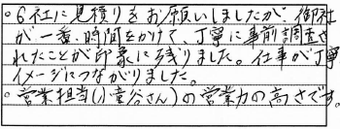 ○6社に見積りをお願いしましたが、御社
が一番、時間をかけて、丁寧に事前調査さ
れたことが印象に残りました。仕事が丁寧
イメージにつながりました。
○営業担当(小童谷さん)の営業力の高さです。